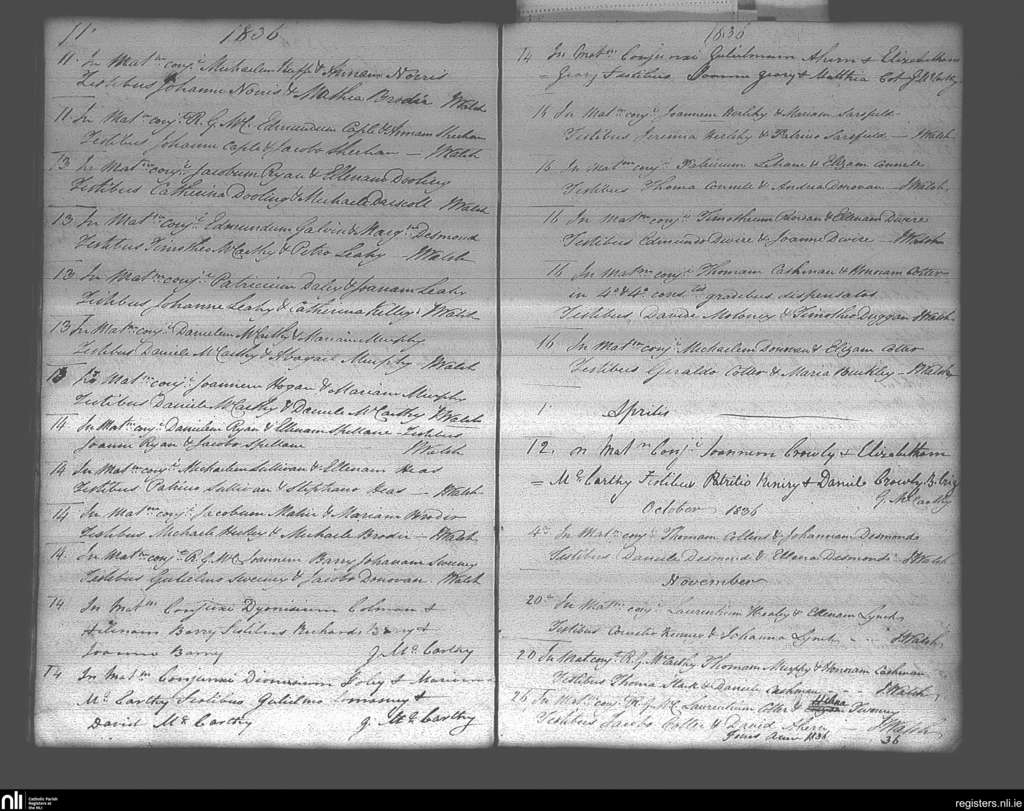 11
1836
11. In Matm conj. Michaelem & Annam Norris
Testibus Johanne Norris & Brodie JWalsh
11 In Matm conj. R.G.McC. Edmundum Caple & Annam Sheehan
Testibus Johanne Caple & Jacobo Sheehan — JWalsh
13 In Matm conj. Jacobum Ryan & Ellenam Dooling
Testibus Catherina Dooling & Michaele Driscoll JWalsh
13 In Matm conj. Edmundum Galvin & Desmond
Testibus Timotheo McCarthy & Petro Leahy — JWalsh
13 In Matm conj. Patricium Daley & Joanam Leahy
Testibus Johanne Leahy & Catherina Kelley JWalsh
13 In Matm conj. Danielem McCarthy & Mariam Murphy
Testibus Daniele McCarthy & Abagael Murphy — JWalsh
13 In Matm conj. Joannem Hogan & Mariam Murphy
Testibus Daniele McCarthy & Daniele McCarthy JWalsh
14 In Matm conj. Danielem Ryan & Ellenam Spellane Testibus
Joanne Ryan & Jacobo Spellane JWalsh
14 In Matm conj. Michaelem Sullivan & Ellenam Heas
Testibus Patricio Sullivan & Stephano Heas — JWalsh
14 In Matm conj. Jacobum Maher & Mariam Brodie
Testibus Michaele & Michaele Brodie — JWalsh
14. In Matm conj. R.G.McC Joannem Barry Johanam Sweeney
Testibus Gulielmo Sweeney & Jacobo Donovan. JWalsh
14 In Matm Conjunxi Dyonisium Colman &
Hellenam Barry Testibus Richardo Barry &
Joanna Barry J. McCarthy
14 In Matm Conjunxi Dionisium Foley & Mariam
McCarthy Testibus Gulielmo &
David McCarthy J. McCarthy
1836
14 In Matm Conjunxi Gulielmum Ahern & Elizabetham
= Geary Testibus Joanne Geary & Matthia Cot J. McCarthy
15 In Matm conj. Joannem Herlihy & Mariam Sarsfield
Testibus Jeremia Herlihy & Patricio Sarsfield — JWalsh
15 In Matm conj. Patricium Lehane & Elizam Connell
Testibus Thoma Connell & Andrea Donovan — JWalsh
16 In Matm conj. Timotheum & Ellenam Dwire
Testibus Edmundo Dwire & Joanne Dwire — JWalsh
16 In Matm conj. Thomam Cashman & Honoram Cotter
in 4o & 4o consts gradibus dispensatos
Testibus Davide Moloney & Timotheo Duggan JWalsh
16 In Matm conj. Michaelem Donovan & Elizam Cotter
Testibus Geraldo Cotter & Maria Buckley — JWalsh
1. Aprilis
12. In Matm Conj. Joannem Crowly & Elizabetham
= McCarthy Testibus Patritio & Daniele Crowly
G. McCarthy
October 1836
4o In Matm conj. Thomam Collins & Johannam Desmond
Testibus Daniele Desmond & Ellena Desmond JWalsh
November
20o In Matm conj. Laurentium Healy & Ellenam Lynch
Testibus Cornelio & Johanna Lynch JWalsh
20 In Mat conj. R.G.McCarthy Thomam Murphy & Honoram Cashman
Testibus Thoma Stack & Daniele Cashman JWalsh
26 In Matm conj. Laurentium Cotter & Helena Twomey
Testibus Jacobo Cotter & David Ahern — JWalsh
Anno 1836 36
nli
Catholic Parish
Registers at
the NLI
registers.nli.ie